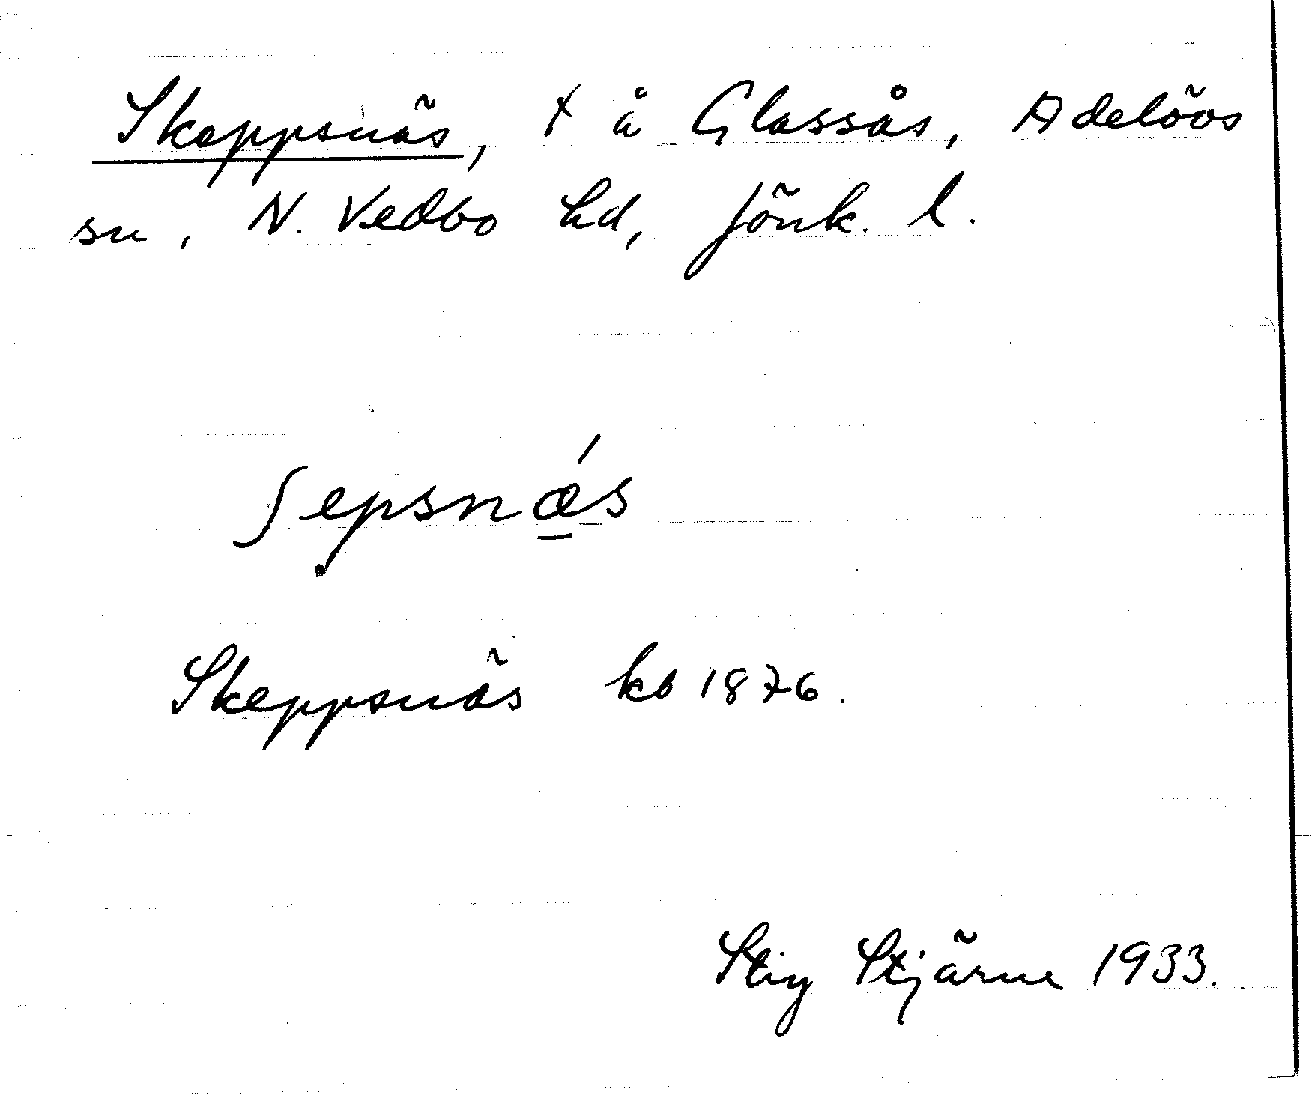 Skeppsnäs, t å Glassås, Adelövs
sn, N. Vedbo hd, Jönk. l.
ʃepsnǽs
Skeppsnäs kb 1876.
Stig Stjärne 1933.